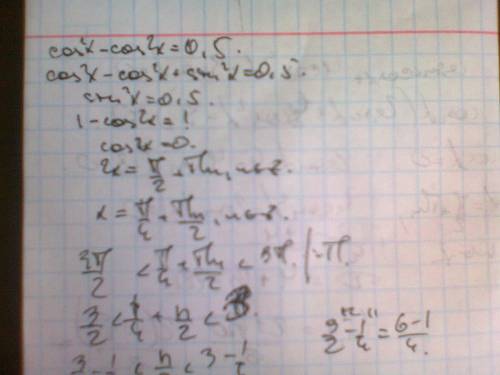 cos²x - cos2x = 0,5.
cos²x - cos²x + sin²x = 0,5.
sin²x = 0,5.
1 - cos2x = 1
cos2x = 0.
2x = π/2 + πn, n∈Z.
x = π/4 + πn/2, n∈Z.
3π/2 < π/4 + πn/2 < 3π. | :π.
3/2 < 1/4 + n/2 < 3.
3/2 - 1/4 = 6-1/4.